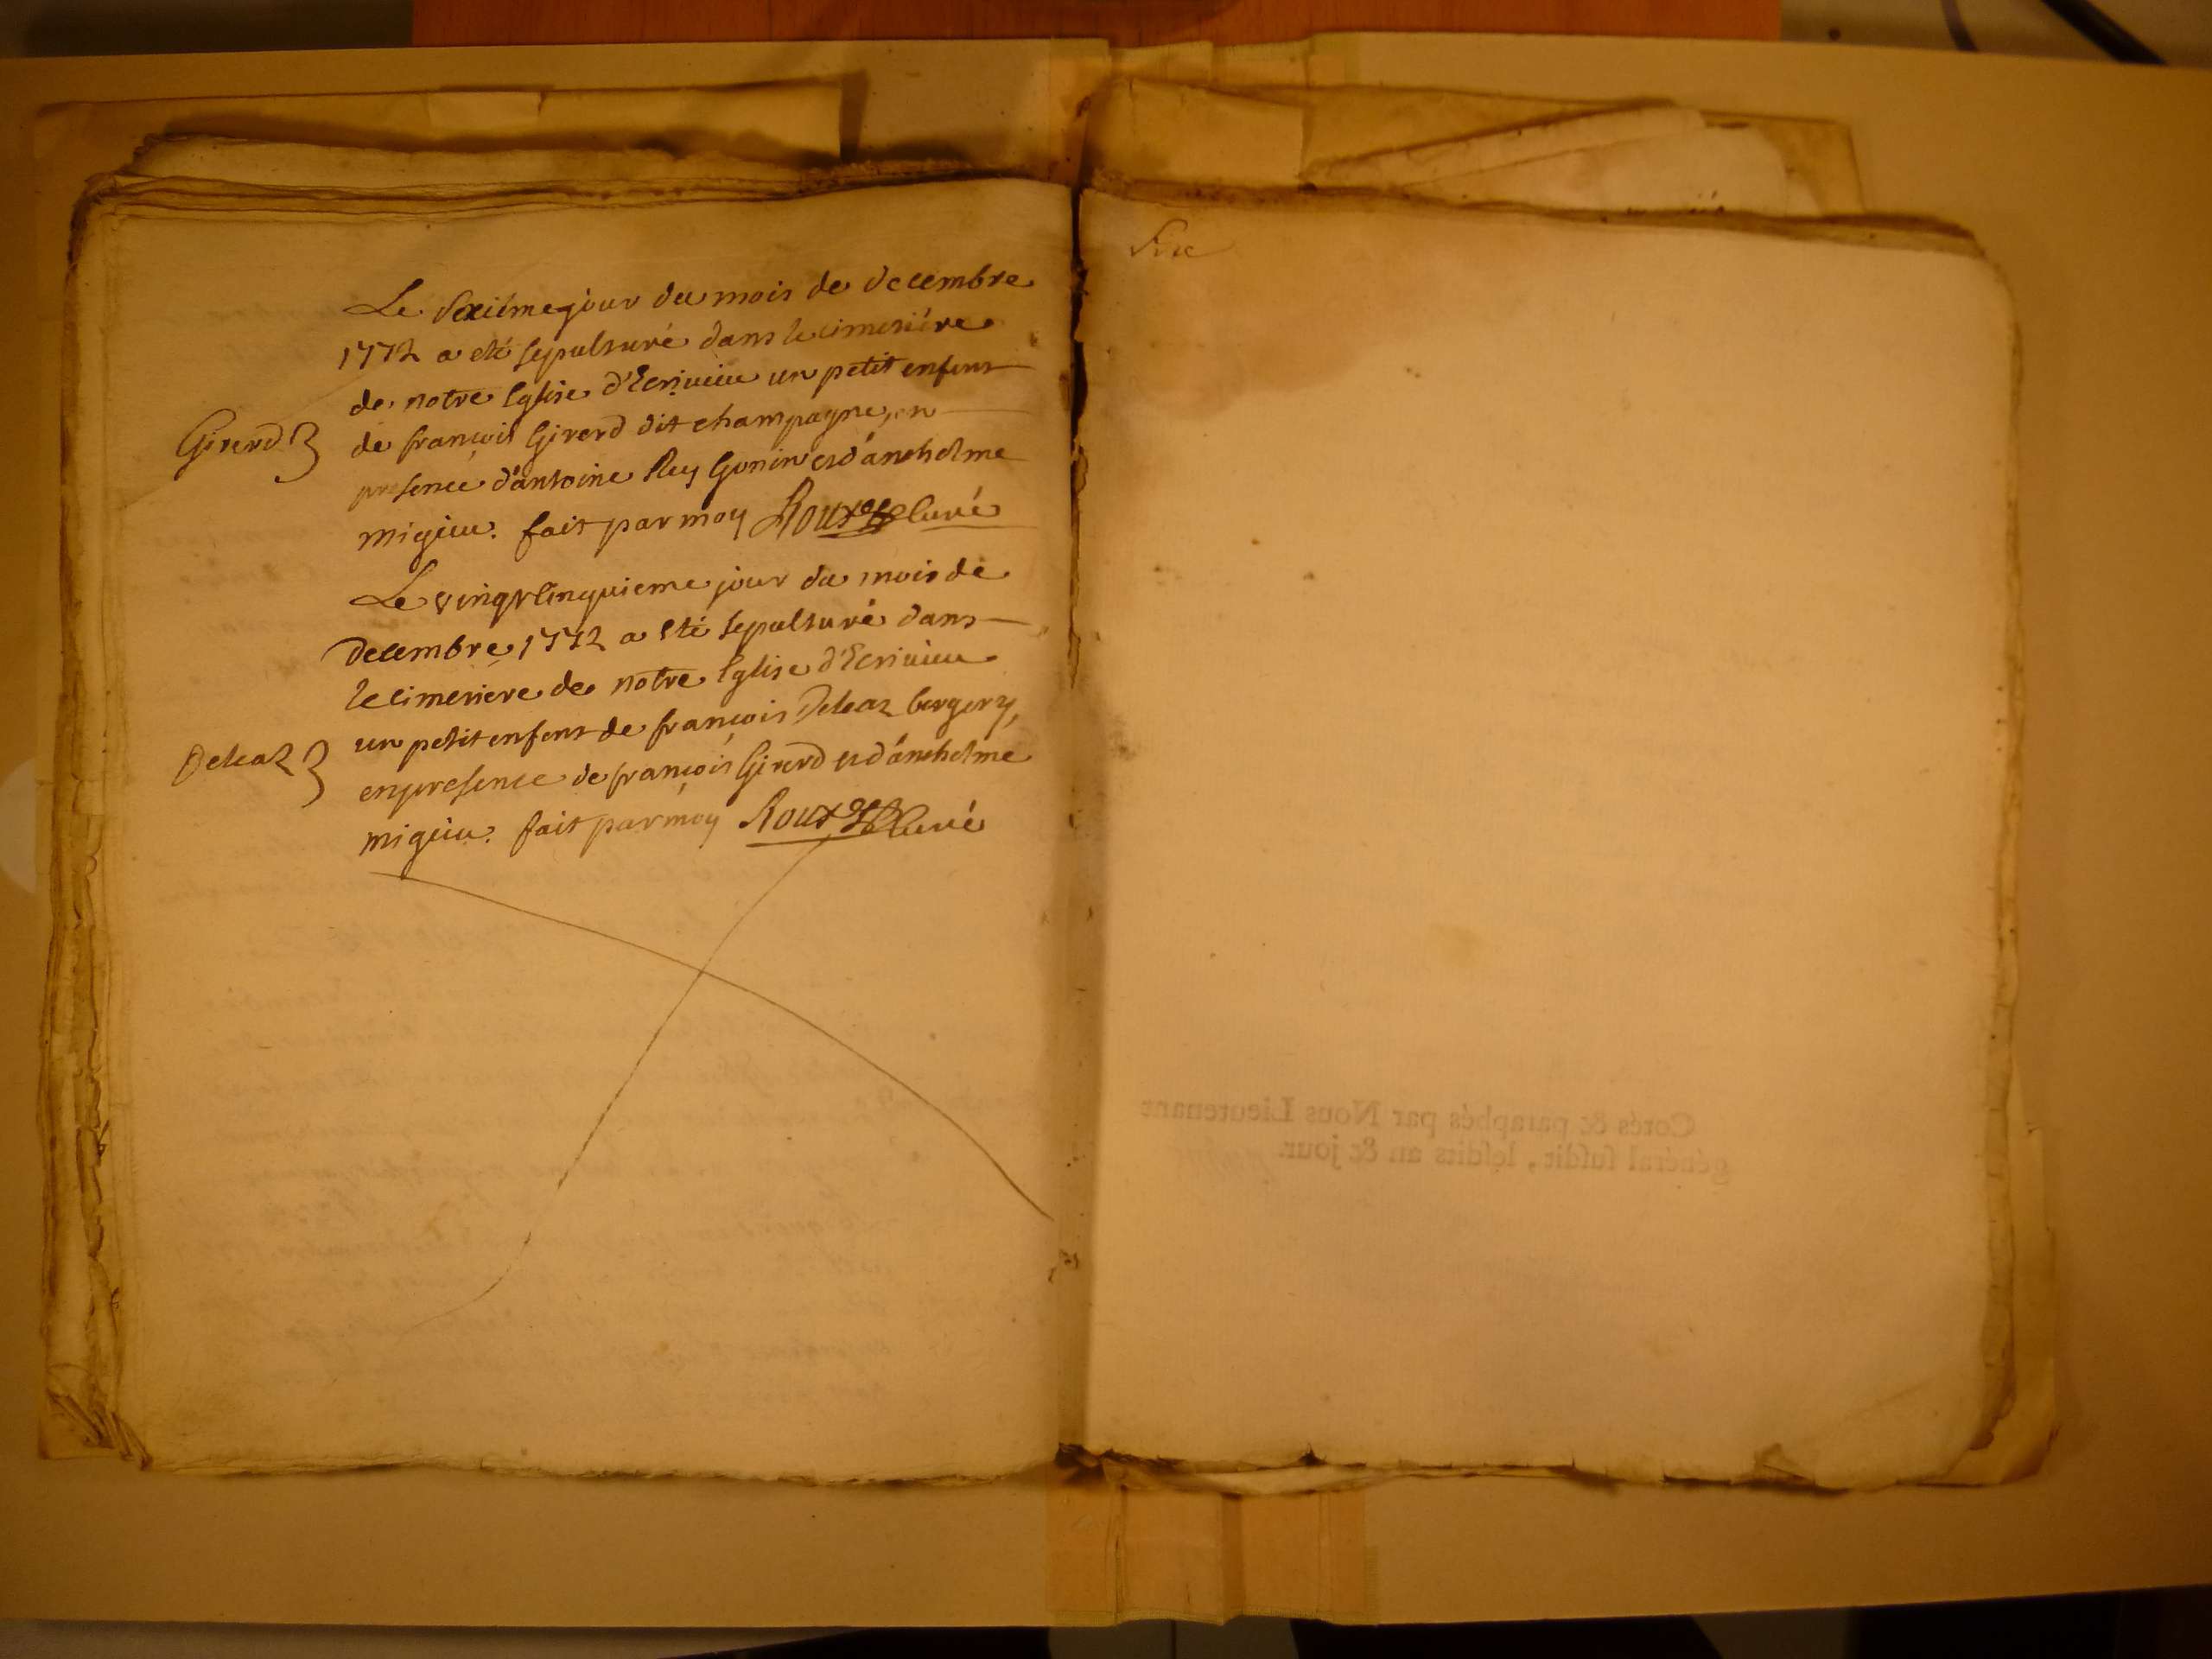 Le sixiéme jour du mois de decembre
1772 a eté sepulturé dans le cimetiére
de notre Eglise d'Ecrivieu un petit enfent
Girerd
de françois Girerd dit champagne, en
presence d'antoine Rey Gonin et d'anthelme
migieu. fait par moy Roux Curé
Le vingt cinquieme jour du mois de
Decembre 1772 a eté sepulturé dans
le cimetiere de notre Eglise d'Ecrivieu
un petit enfent de françois Deleaz bergery,
Deleaz
en presence de françois Girerd et d'anthelme
migieu. fait par moy Roux Curé
Cotés & paraphés par Nous Lieutenant
général susdit, lesdits an & jour.